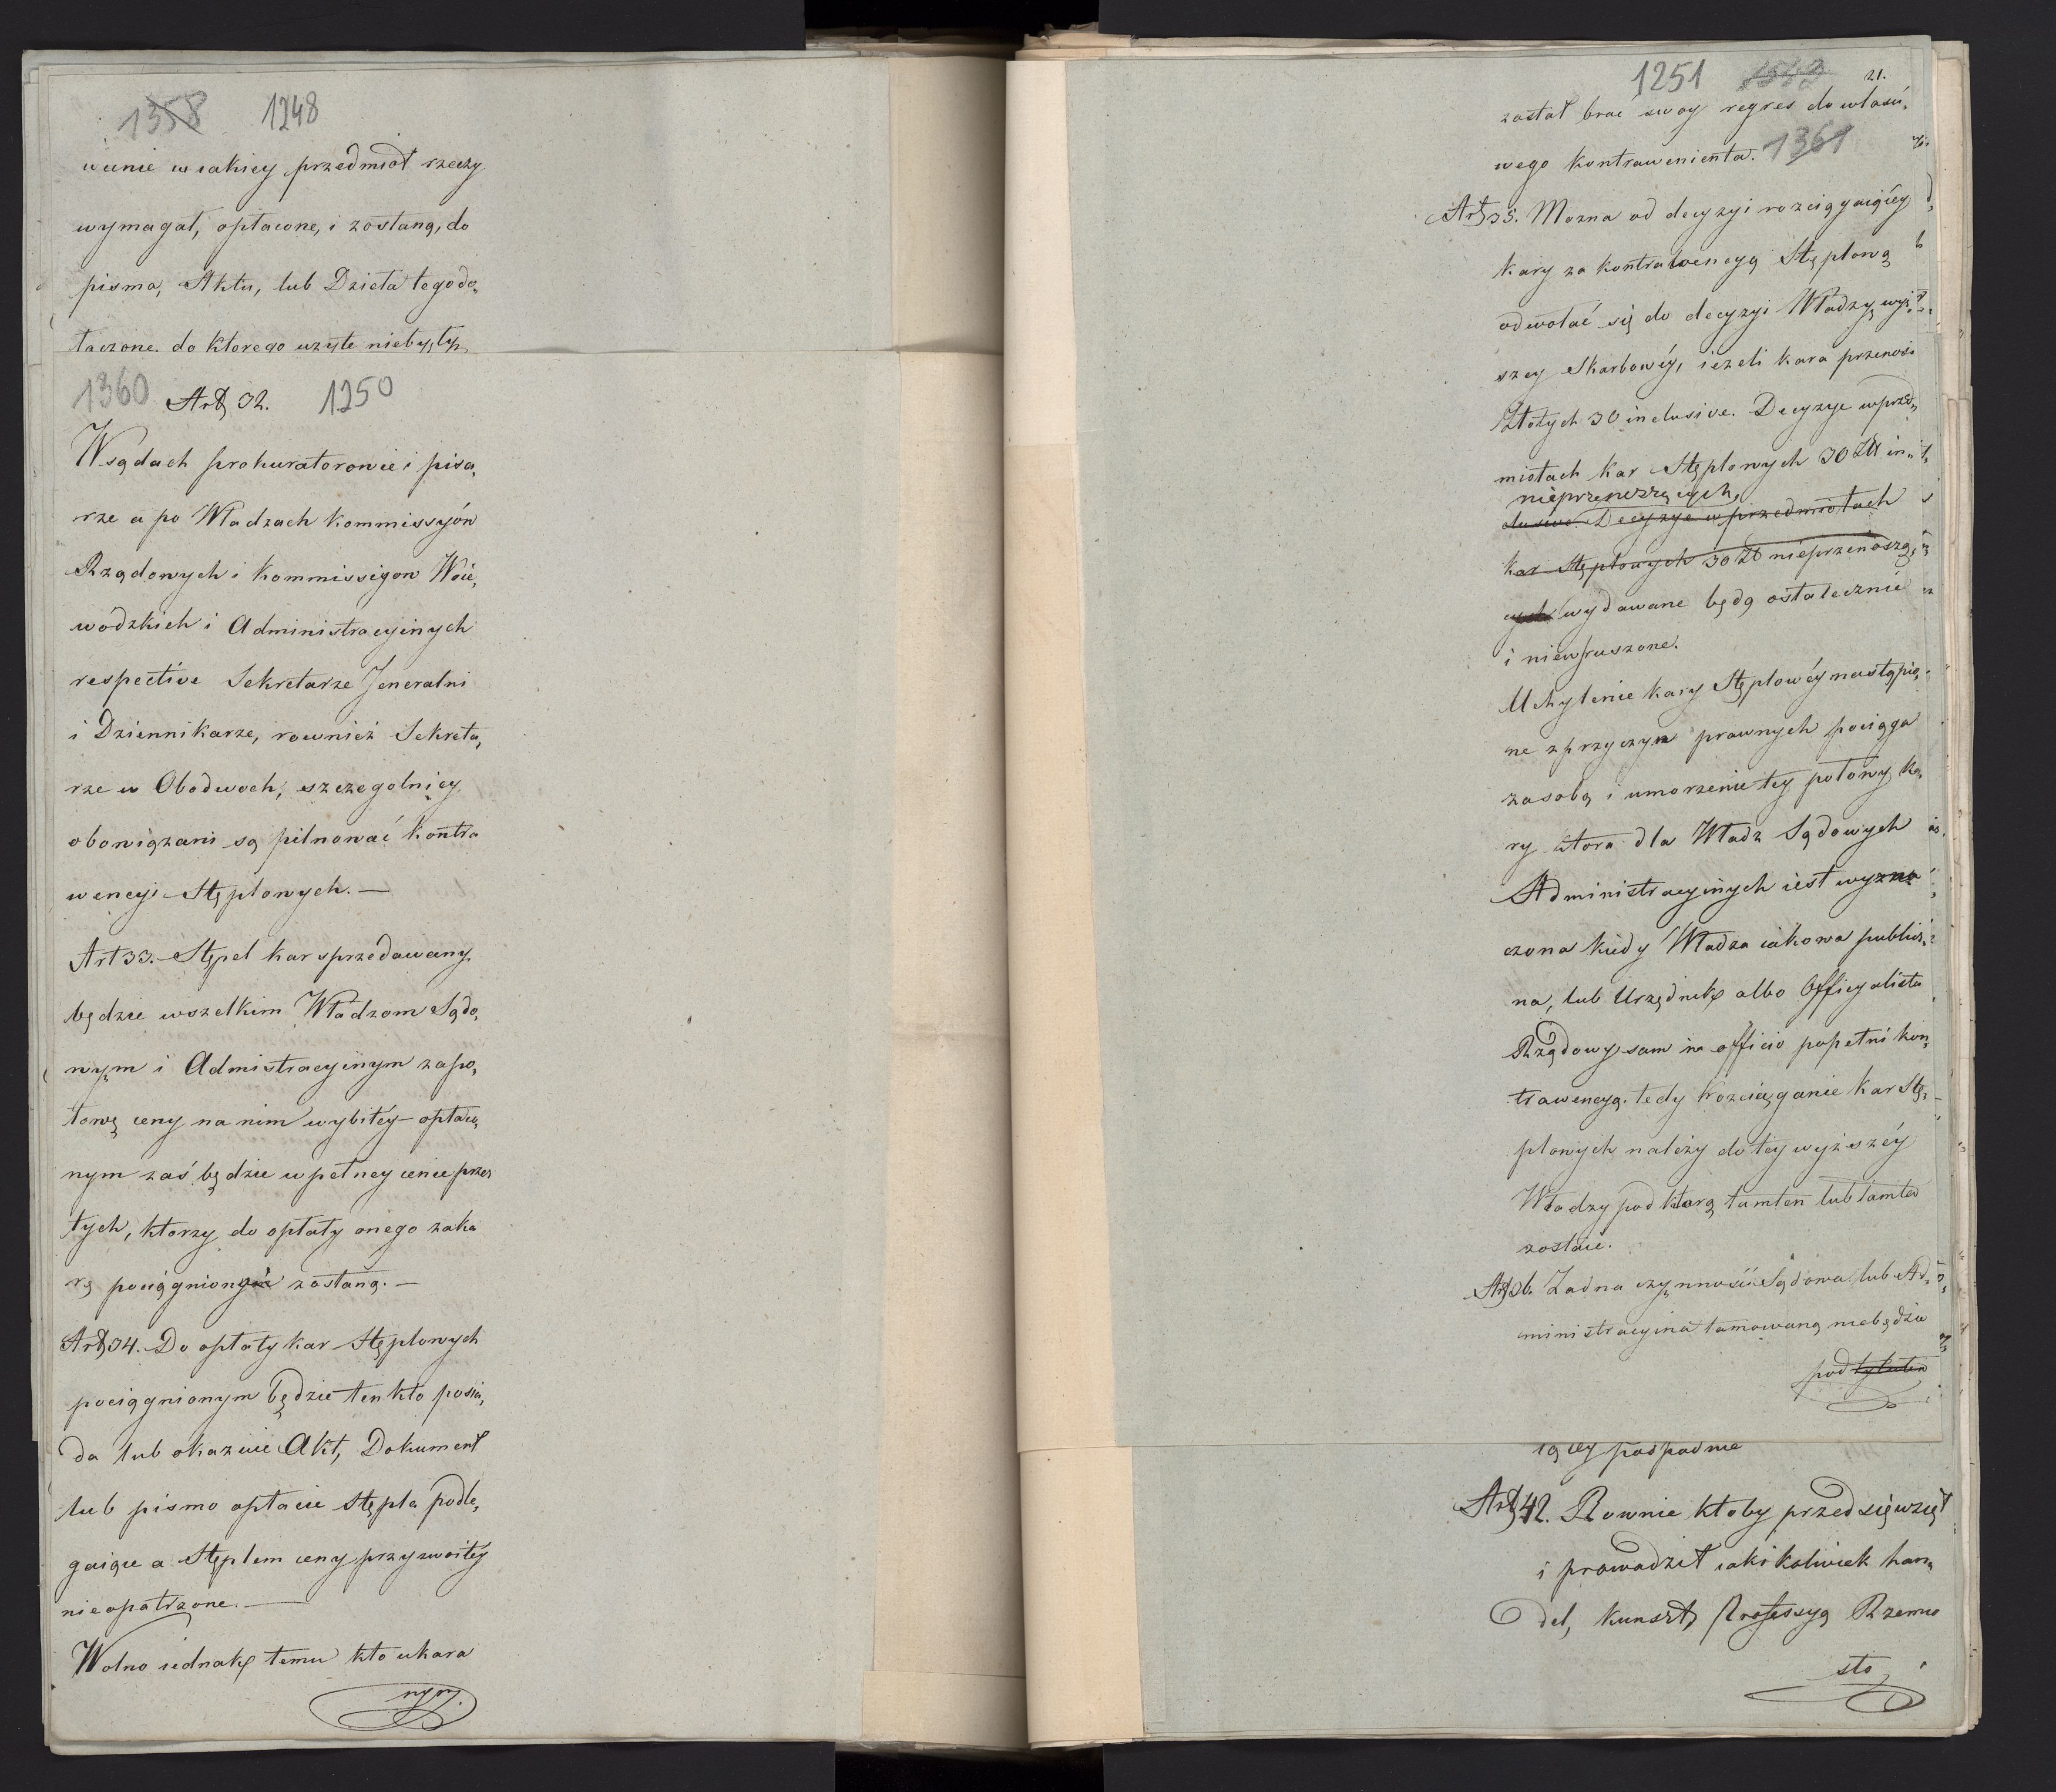 1358 1248
wienie w iakiey przedmiot rzeczy
wymagał, opłacone, i zostaną, do
pisma, Aktu, lub Dzieła tego do,
łączone. do ktorego użyte niebyły,
1360 Art 32. 1250
W sądach prokuratorowie i pisa,
rze a po Władzach Kommissyón
Rządowych i Kommissigow Woie,
wódzkich i Administracyinych
respective Sekretarze Jeneralni
i Dziennikarze, rownież Sekreta,
rze w Obodwoch, szczegolniey
obowiązani są pilnować kontra
wencyi Stęplowych. —
Art 33. Stępel kar sprzedawany
będzie wszelkim Władzom Sądo,
wym i Admistracyinym za po,
łowę ceny na nim wybitéy opłaco,
nym zaś będzie w pełney cenie przez
tych, ktorzy do opłaty onego za ka
rę pociągnionymi zostaną. —
Art 34. Do opłaty kar Stęplowych
pociągnionym będzie ten kto posia,
da lub okazuie Akt, Dokument
lub pismo opłacie stępla podle,
gaiące a Stęplem ceny przyzwoitéy
nieopatrzone. —
Wolno iednakże temu kto ukara
nym.
1251 21.
został brać swoy regres do właści,
wego kontrawenienta. 1361
Art 35. Mozna od decyzyi rozciągaiącéy
kary za kontrawencyą Stęplową
odwołać się do decyzyi Władzy wyż
szey Skarbowéy, ieżeli kara przenosi
Złotych 30 inclusive. Decyzye w przed,
miotach kar Stęplowych 30 Zł in,
nieprzenoszących,
clusive. Decyzye w przedmiotach
kar Stęplowych 30 Zł nieprzenoszą,
cych wydawane będą ostatecznie
i niewzruszone.
Uchylenie kary Stęplowéy nastąpio,
ne z przyczyn prawnych pociąga
za sobą i umorzenie tey połowy ka,
ry ktora dla Władz Sądowych
Administracyinych iest wyzna
czona kiedy Władza iakowa publicz,
na, lub Urzędnik albo Officyalista
Rządowy sam in officio popełni kon,
trawencyą. tedy rozciąganie kar Stę,
plowych należy do téy wyższéy
Władzy pod ktorą tamten lub tamta
zostaie.
Art 36. Żadna czynność Sądowa lub Ad,
ministracyina tamowaną niebędzie
pod tytułem
iącey podpadnie
Art 42. Rownie ktoby przedsięwziął
i prowadził iaki kolwiek han,
del, kunszt, Professyą Rzemio
sło